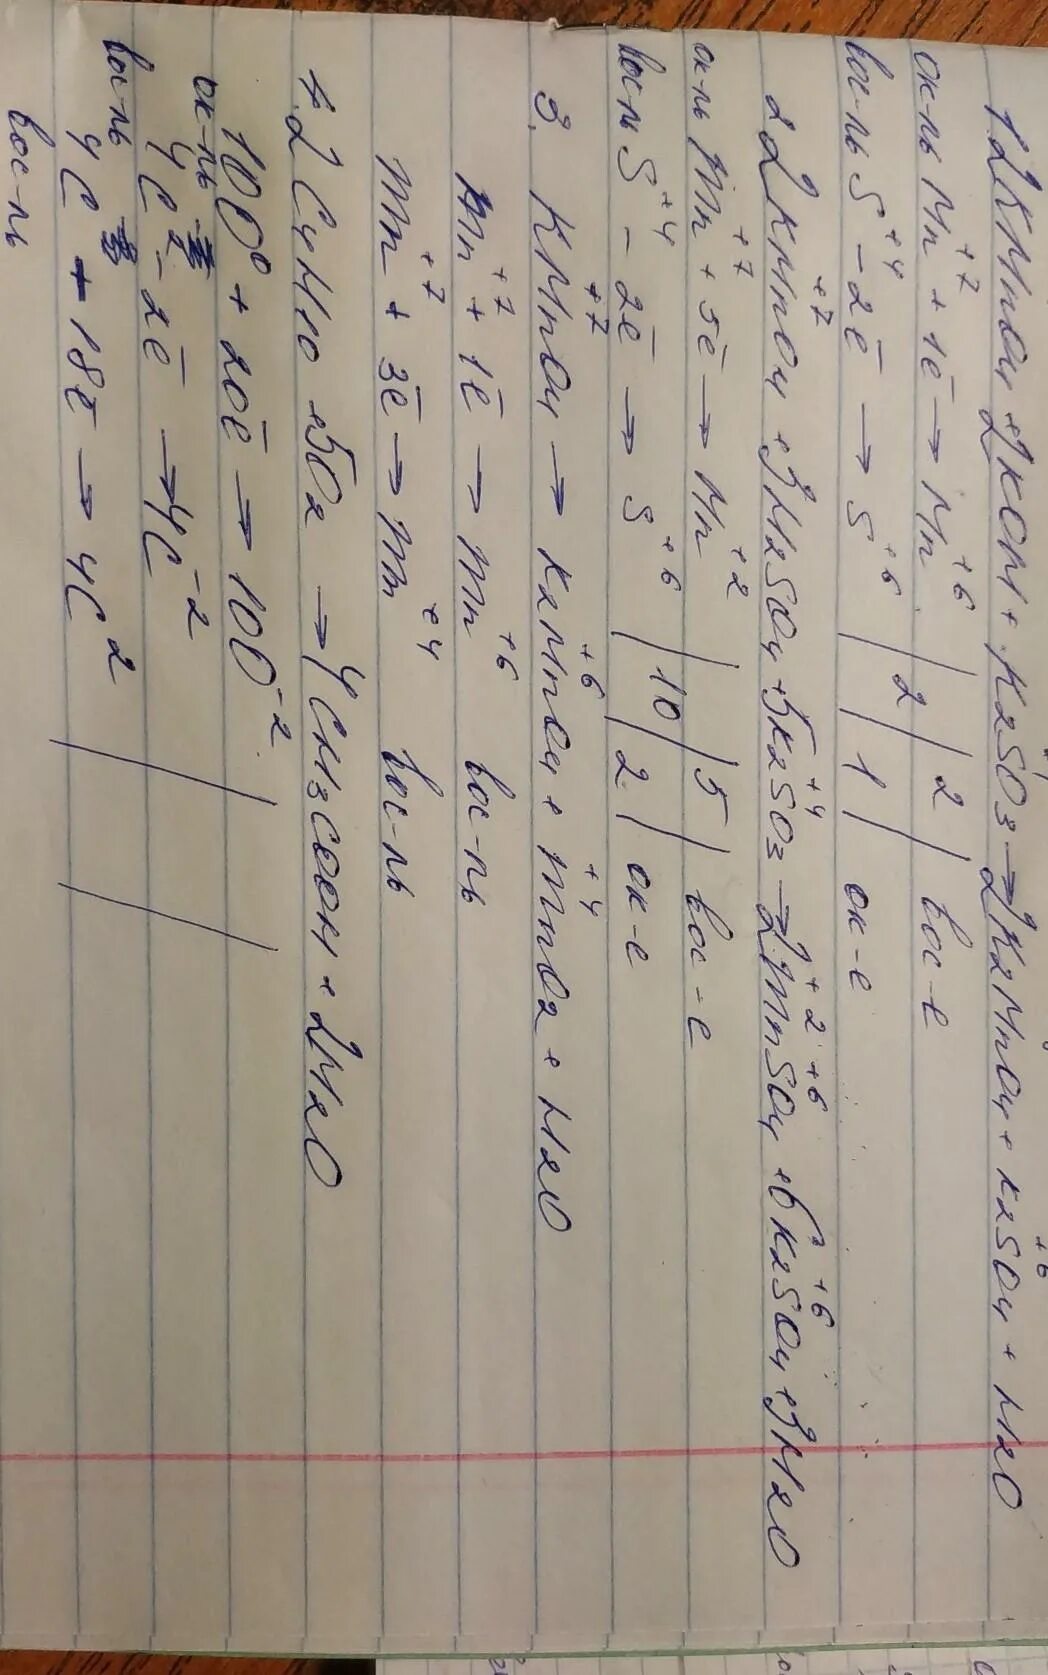 1. 2KMnO4 + 2KOH + K2SO3 → 2K2MnO4 + K2SO4 + H2O
ок-ль Mn+7 + 1ē → Mn+6 | 2 | 2 | вос-е
вос-ль S+4 - 2ē → S+6 | 1 | ок-е
2. 2KMnO4 + 3H2SO4 + 5K2SO3 → 2MnSO4 + 6K2SO4 + 3H2O
ок-ль Mn+7 + 5ē → Mn+2 | 5 | вос-е
вос-ль S+4 - 2ē → S+6 | 10 | 2 | ок-е
3. KMnO4 → K2MnO4 + MnO2 + H2O
Mn+7 + 1ē → Mn+6 вос-ль
Mn+7 + 3ē → Mn+4 вос-ль
4. 2C4H10 + 5O2 → 4CH3COOH + 2H2O
10O0 + 20ē → 10O-2
ок-ль
4C-2 - 2ē → 4C-2
вос-ль
4C + 18ē → 4C2
вос-ль